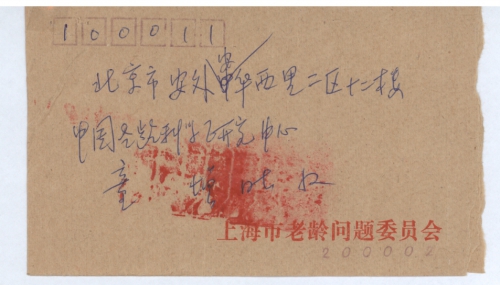 100011
北京市安外华西里二区十二楼
中国老龄科学研究中心
童 增 收
上海市老龄问题委员会
200002